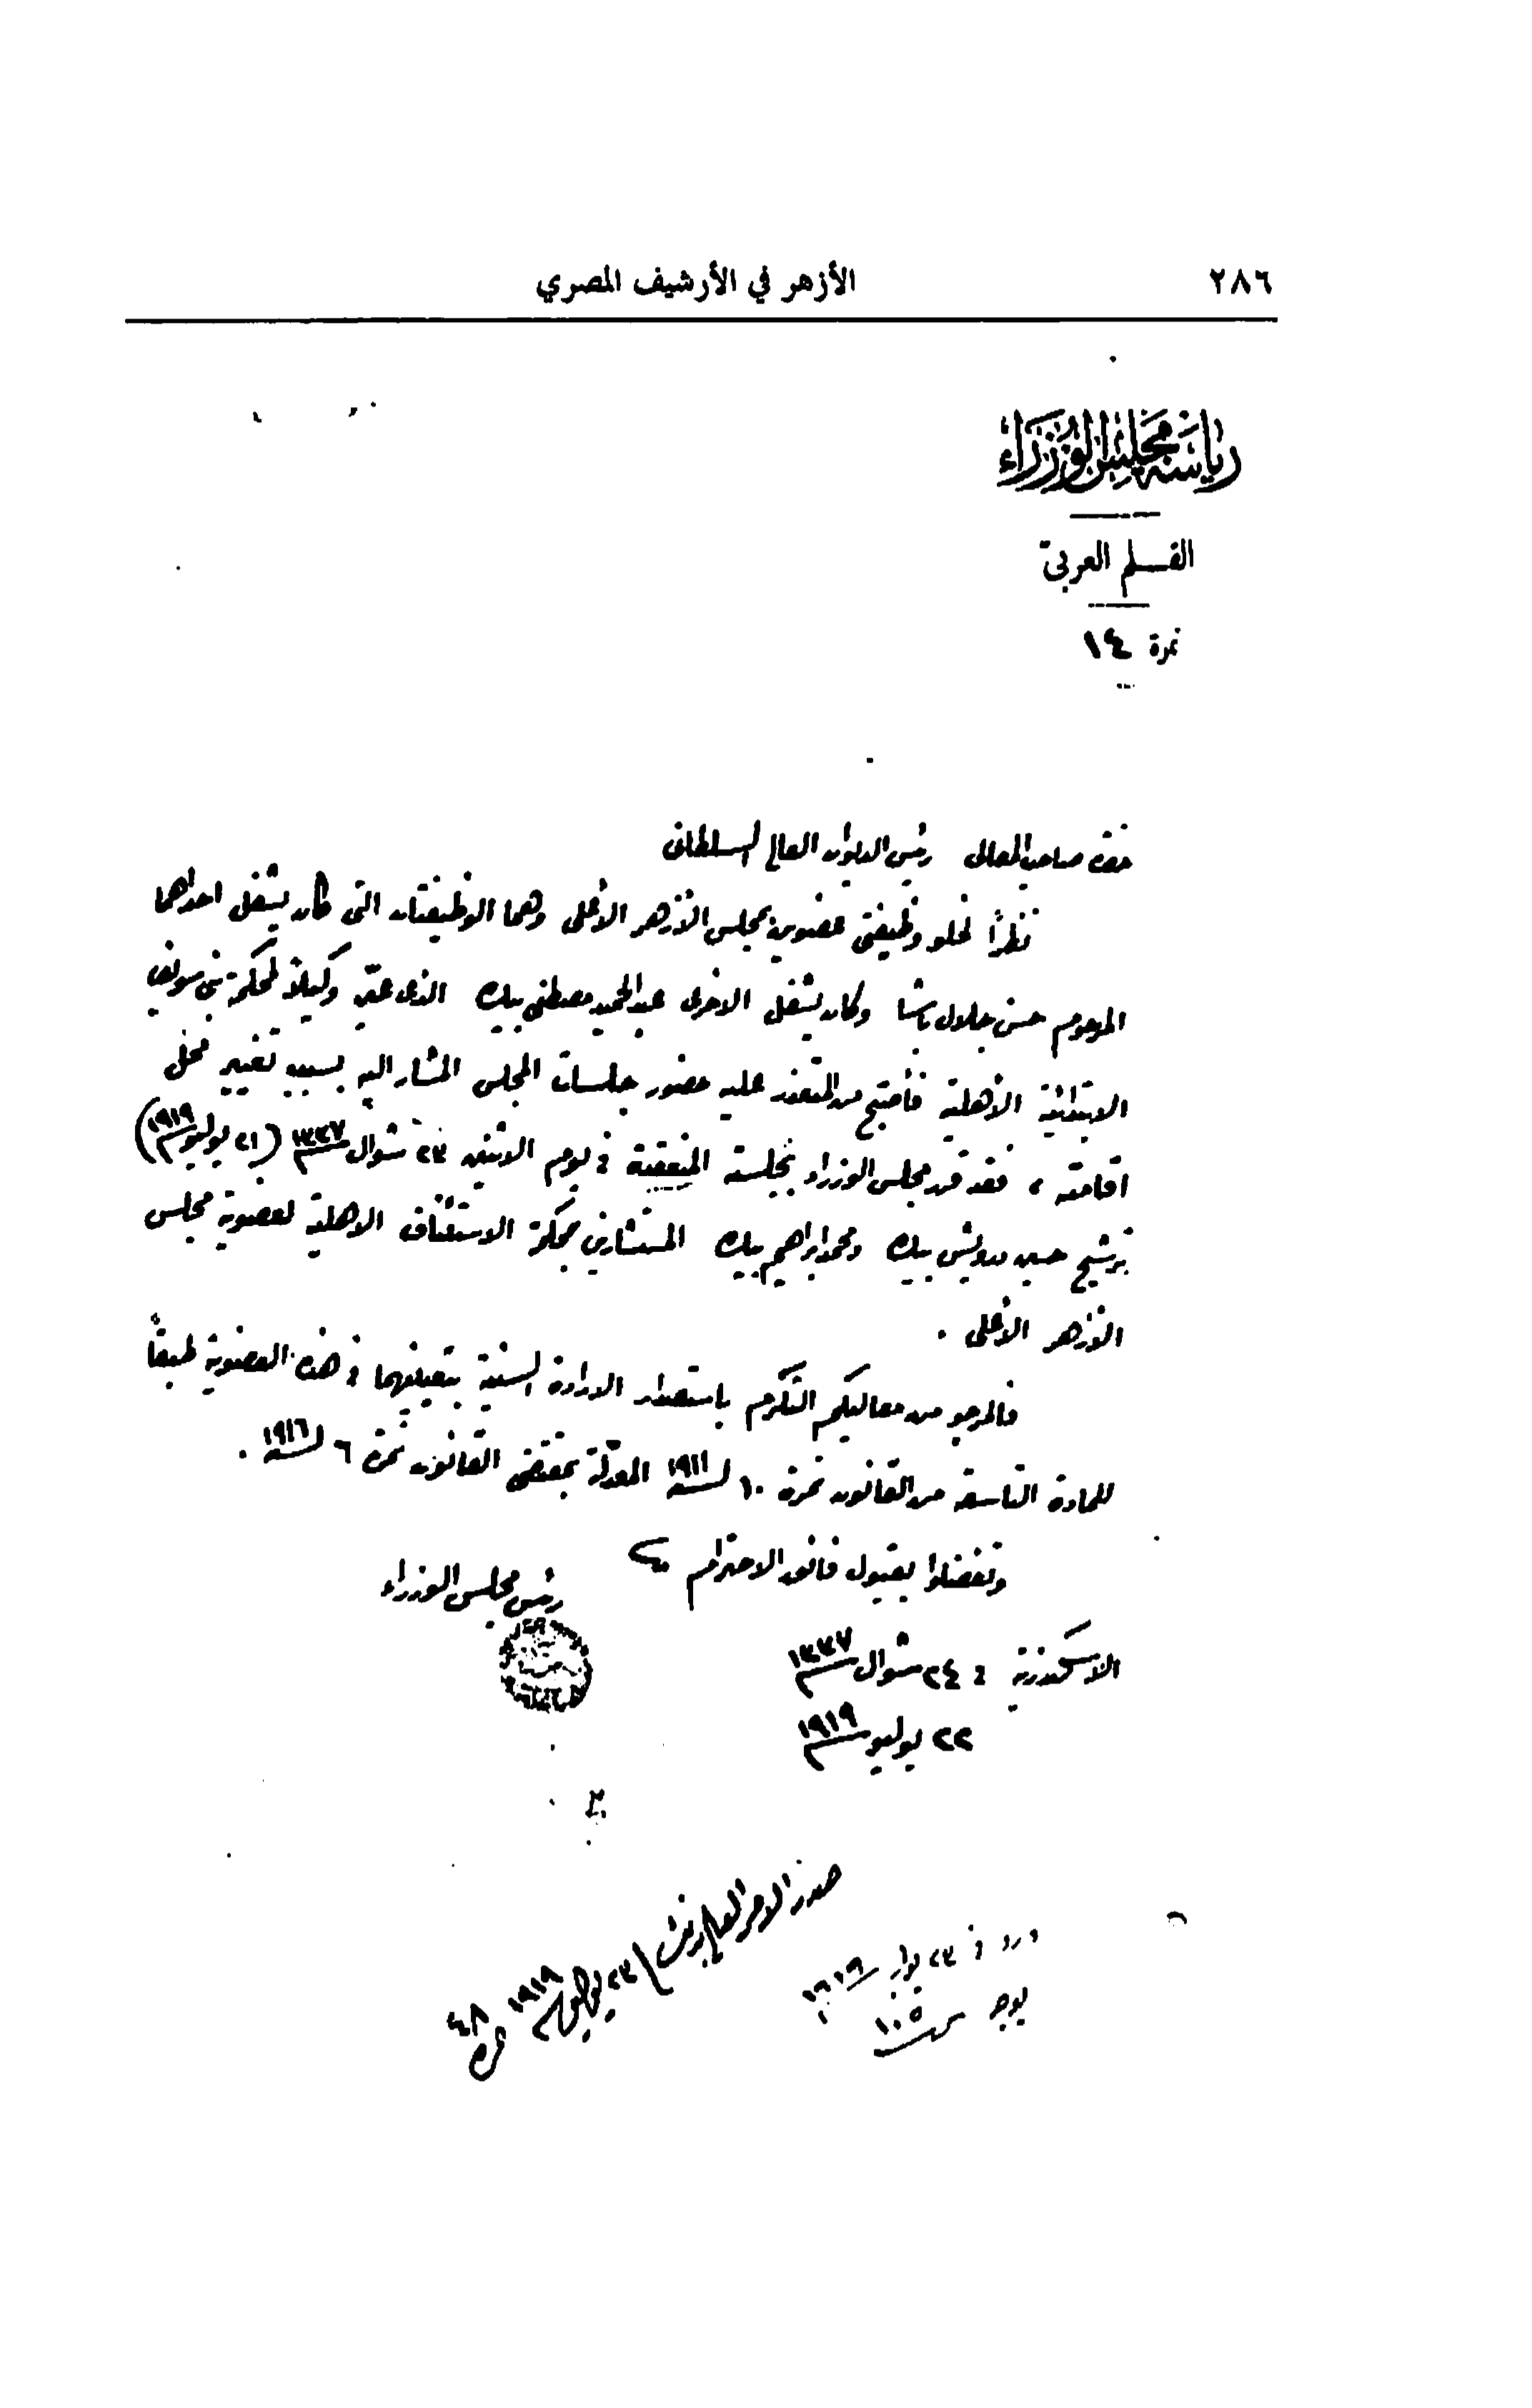 ٢٨٦
الأزهر في الأرشيف المصري
رياسة مجلس الوزراء
القسلم العربى
نمرة ١٤
حضرة صاحب المعالى رئيس الديوان العالى السلطانى
نظراً لخلو وظيفتى عضوين بمجلس الأزهر الأعلى وهما الوظيفتان التى كان يشغل احداهما
المرحوم حسن جلال باشا وكان يشغل الاخرى عبد الحميد مصطفى بيك الذى عين وكيلاً لمحكمة بنى سويف
الابتدائية الأهلية فأصبح من المتعذر عليه حضور جلسات المجلس المشار اليه بسبب تغيير محل
اقامته ، فقد قرر مجلس الوزراء بجلسته المنعقدة فى يوم الاثنين ٢٣ شوال ١٣٣٧ (٢١ يوليو ١٩١٩)
ترشيح حسين درويش بيك ومحمد ابراهيم بيك المستشارين بمحكمة الاستئناف الاهلية لعضوية مجلس
الأزهر الأعلى .
فالمرجو من معاليكم التكرم باستصدار الارادة السنية بتعيينهما فى هذه العضوية طبقاً
للمادة التاسعة من القانون نمرة ١٠ لسنة ١٩١١ المعدلة بمقتضى القانون نمرة ٦ لسنة ١٩١٦ .
وتفضلوا بقبول فائق الاحترام
رئيس مجلس الوزراء
الاسكندرية فى ٢٤ شوال ١٣٣٧
٢٢ يوليو ١٩١٩
صدر الامر العالى
٢٣ يوليو ١٩١٩
نمرة ٤٨
ورد فى ٢٣ يوليو ١٩١٩
١٠٥